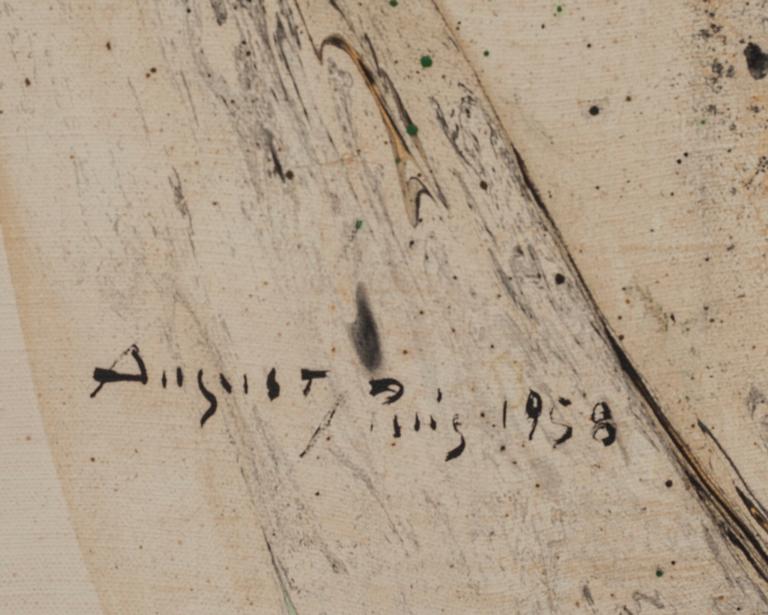 August Puig 1958